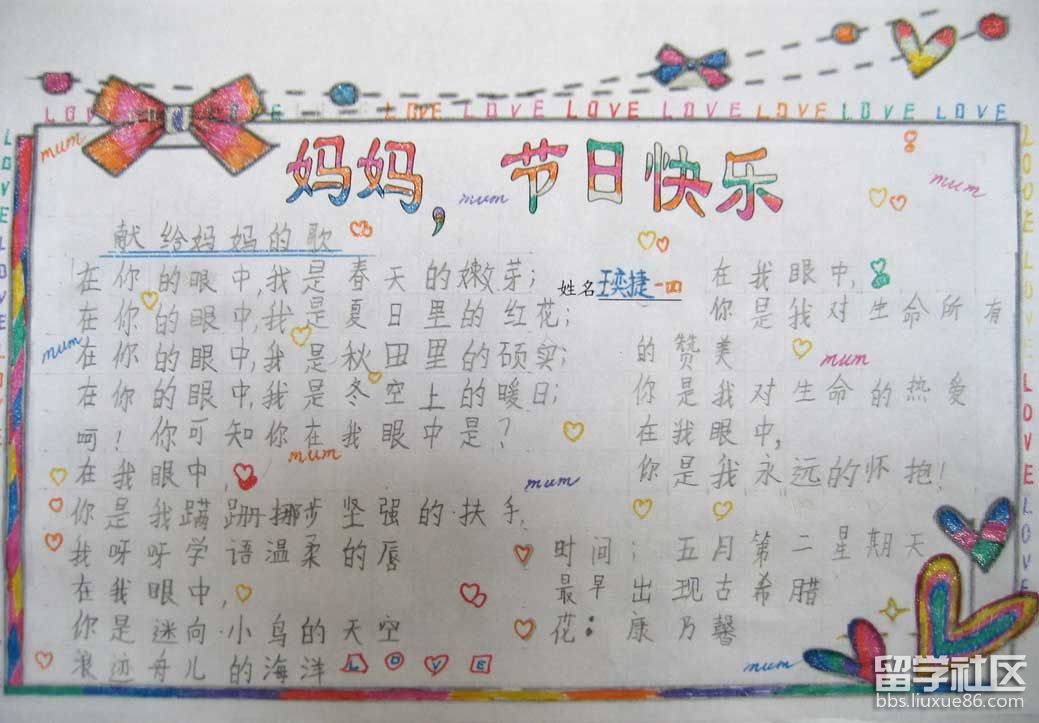 LOVE LOVE LOVE LOVE LOVE LOVE LOVE LOVE LOVE
妈妈，节日快乐
mum
mum
mum
献给妈妈的歌
在你的眼中,我是春天的嫩芽；
在你的眼中,我是夏日里的红花；
在你的眼中,我是秋田里的硕实；
在你的眼中,我是冬空上的暖日；
呵！你可知你在我眼中是？
在我眼中,
你是我蹒跚挪步坚强的扶手,
我呀呀学语温柔的唇
在我眼中,
你是迷向小鸟的天空
浪迹舟儿的海洋 LOVE
mum
mum
mum
姓名 王奕捷 一四
在我眼中,
你是我对生命所有
的赞美
mum
你是我对生命的热爱
在我眼中,
你是我永远的怀抱！
时间：五月第二星期天
最早出现古希腊
花：康乃馨
mum
LOVE LOVE
LOVE LOVE LOVE LOVE
留学社区
bbs.liuxue86.com